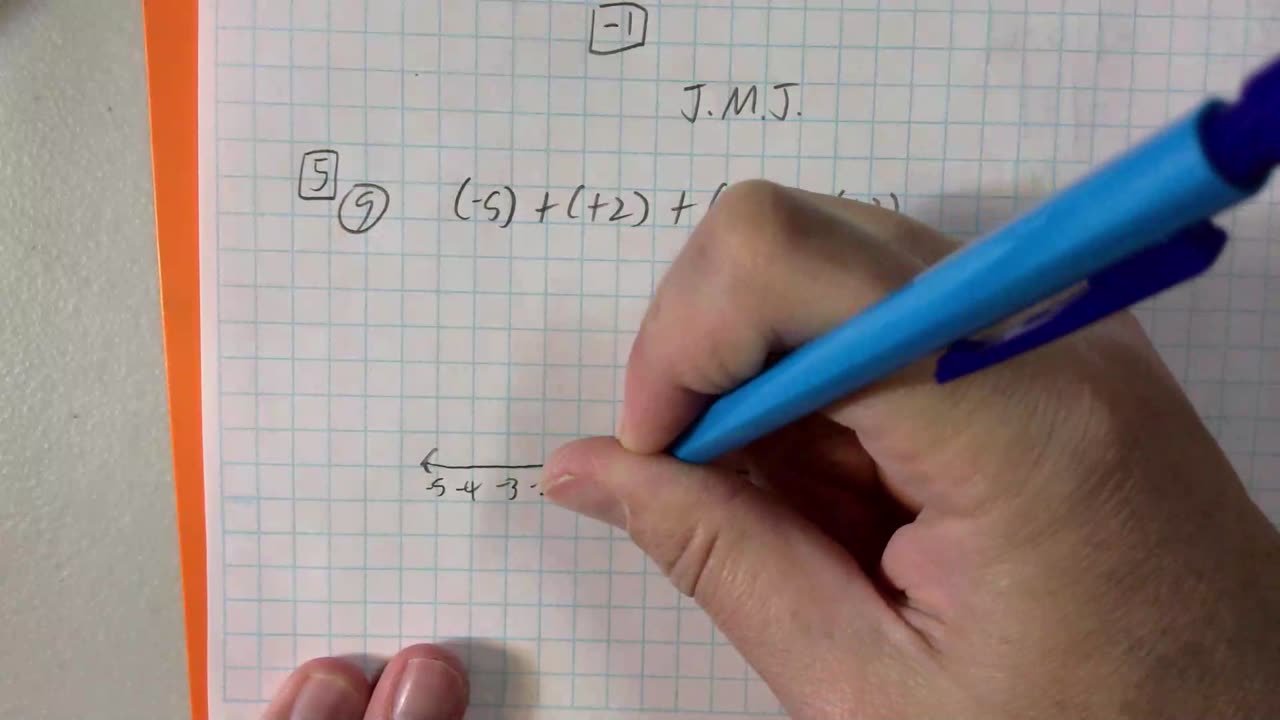 -1
J.M.J.
5
9 (-5) + (+2) + (
-5 -4 -3